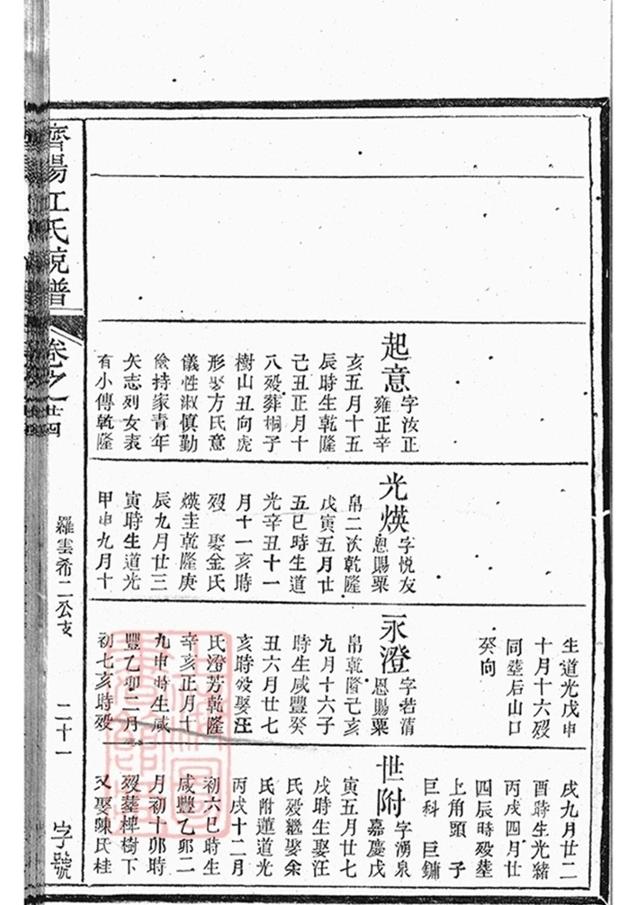 濟陽江氏統譜
卷之廿四
羅雲希二公支
二十一
字號
起意
字汝正
雍正辛
亥五月十五
辰時生乾隆
己丑正月十
八歿葬桐子
樹山丑向虎
形娶方氏意
儀性淑慎勤
儉持家青年
矢志列女表
有小傳乾隆
光煐
字悦友
恩賜粟
帛二次乾隆
戊寅五月廿
五巳時生道
光辛丑十一
月十一亥時
歿娶金氏
煐圭乾隆庚
辰九月廿三
寅時生道光
甲申九月十
生道光戊申
十月十六歿
同塟后山口
癸向
永澄
字若清
恩賜粟
帛乾隆己亥
九月十六子
時生咸豐癸
丑六月廿七
亥時歿娶汪
氏澄芳乾隆
辛亥正月十
九申時生咸
豐乙卯二月
初七亥時歿
戌九月廿二
酉時生光緒
丙戌四月廿
四辰時歿塟
上角頭子
巨科巨鏞
世附
字湧泉
嘉慶戊
寅五月廿七
戌時生娶汪
氏歿繼娶余
氏附蓮道光
丙戌十二月
初六巳時生
咸豐乙卯二
月初十卯時
歿塟椑樹下
又娶陳氏桂